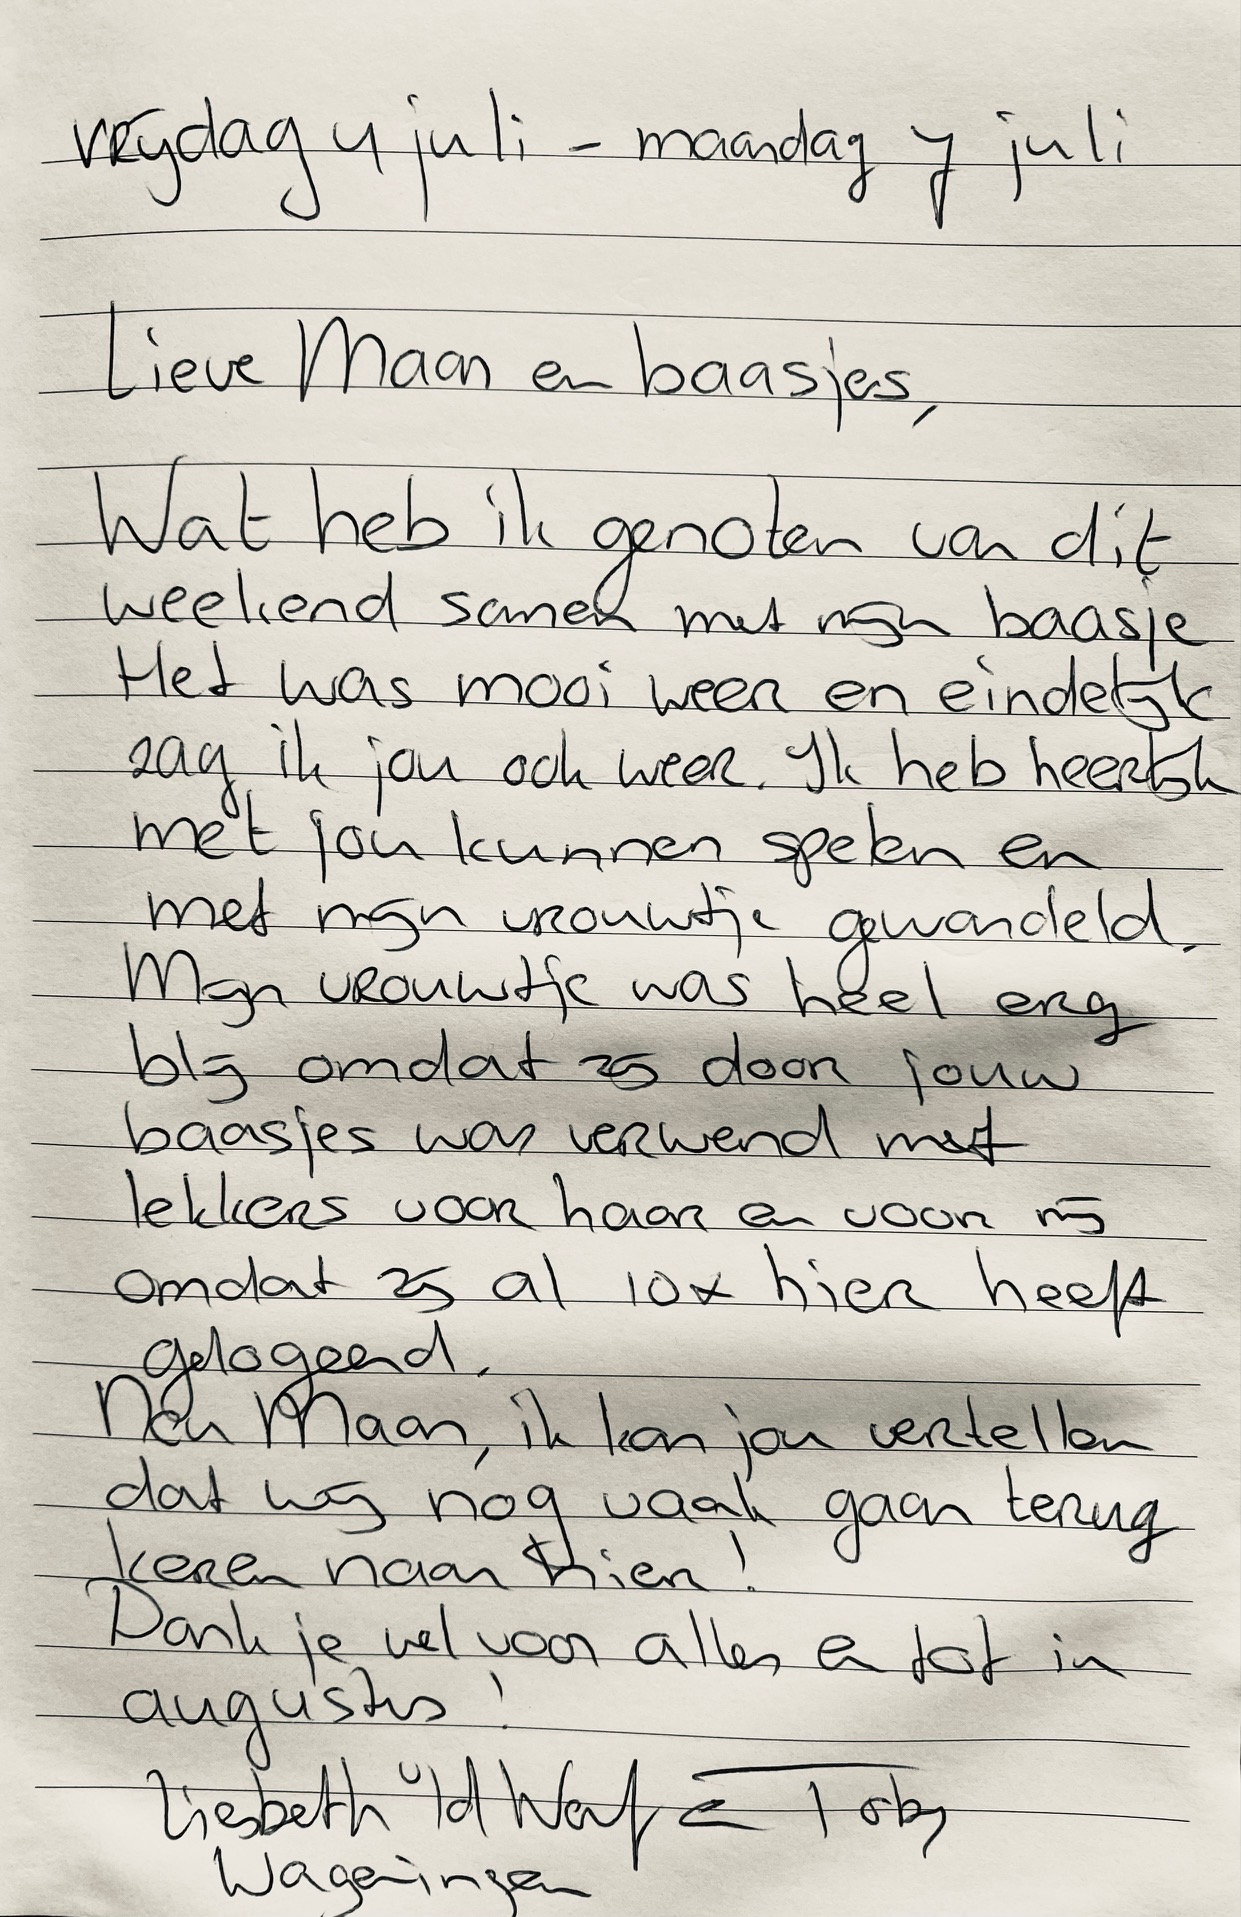 vrijdag 4 juli - maandag 7 juli
Lieve Maan en baasjes,
Wat heb ik genoten van dit
weekend samen met mijn baasje
Het was mooi weer en eindelijk
zag ik jou ook weer. Ik heb heerlijk
met jou kunnen spelen en
met mijn vrouwtje gewandeld.
Mijn vrouwtje was heel erg
blij omdat zij door jouw
baasjes was verwend met
lekkers voor haar en voor mij
omdat zij al 10x hier heeft
gelogeerd.
Nou Maan, ik kan jou vertellen
dat wij nog vaak gaan terug
keren naar hier!
Dank je wel voor alles en tot in
augustus!
Liesbeth Werf en Toby
Wageningen